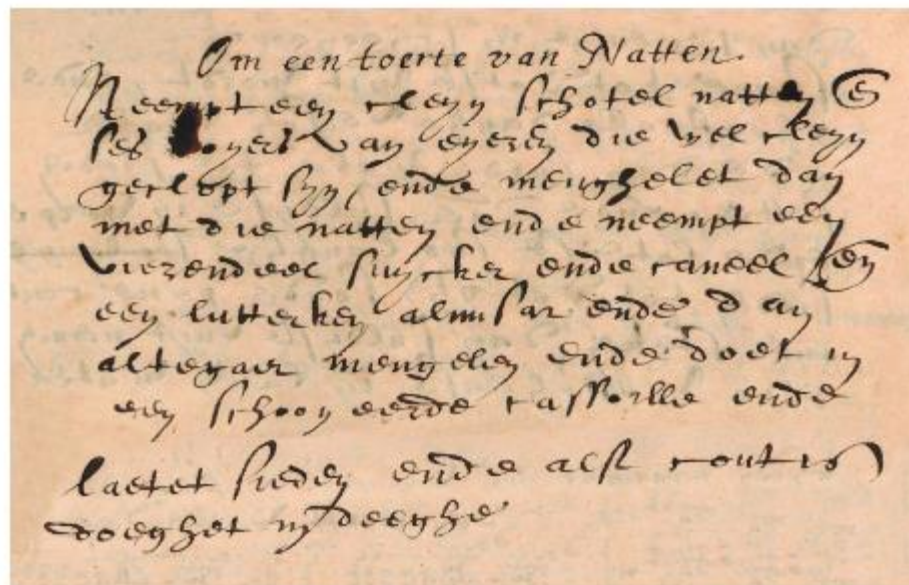 Om een toerte van Natten.
Neempt een cleyn schotel natten en
ses doyers van eyeren die wel cleyn
geclopt syn ende menghelet dan
met die natten ende neempt een
vierendeel suycker ende caneel en
een lutterken alimsar ende dan
altegaer mengelen ende doet in
een schoon eerde cassorlle ende
laetet sieden ende alst cout is
doeghet in deeghe